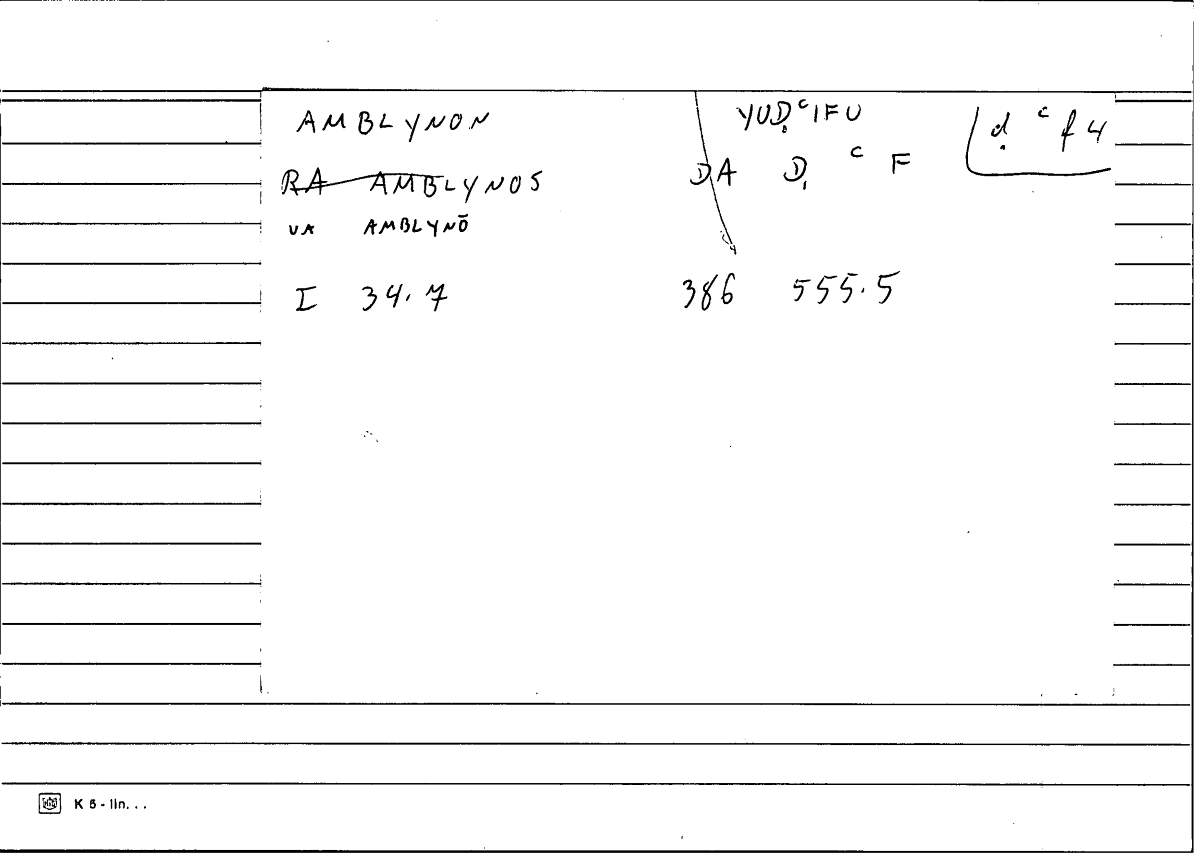 AMBLYNON YUḌʿIFU ḍ ʿ f 4
RA AMBLYNOS DA Ḍ ʿ F
VA AMBLYNŌ
I 34.7 386 555.5
K 6 - lin. . .